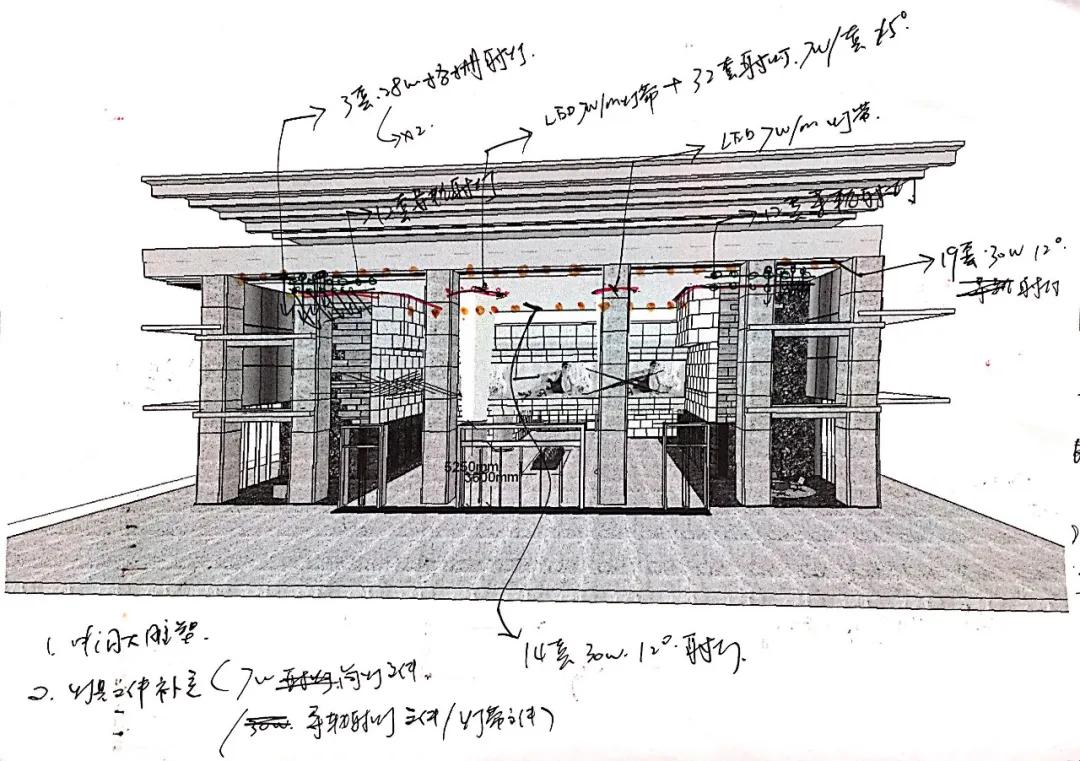 3套.28w格栅射灯.
x2.
LED 7w/m灯带+32套射灯.7w/套 45°
LED 7w/m 灯带.
12套导轨射灯
12套导轨射灯
19套.30w 12°.
射灯
5250mm
3600mm
14套 30w. 12°.射灯.
1. 中间大雕塑.
2. 灯具文件补充(7w 筒灯文件.
/ 导轨射灯文件/灯带文件)